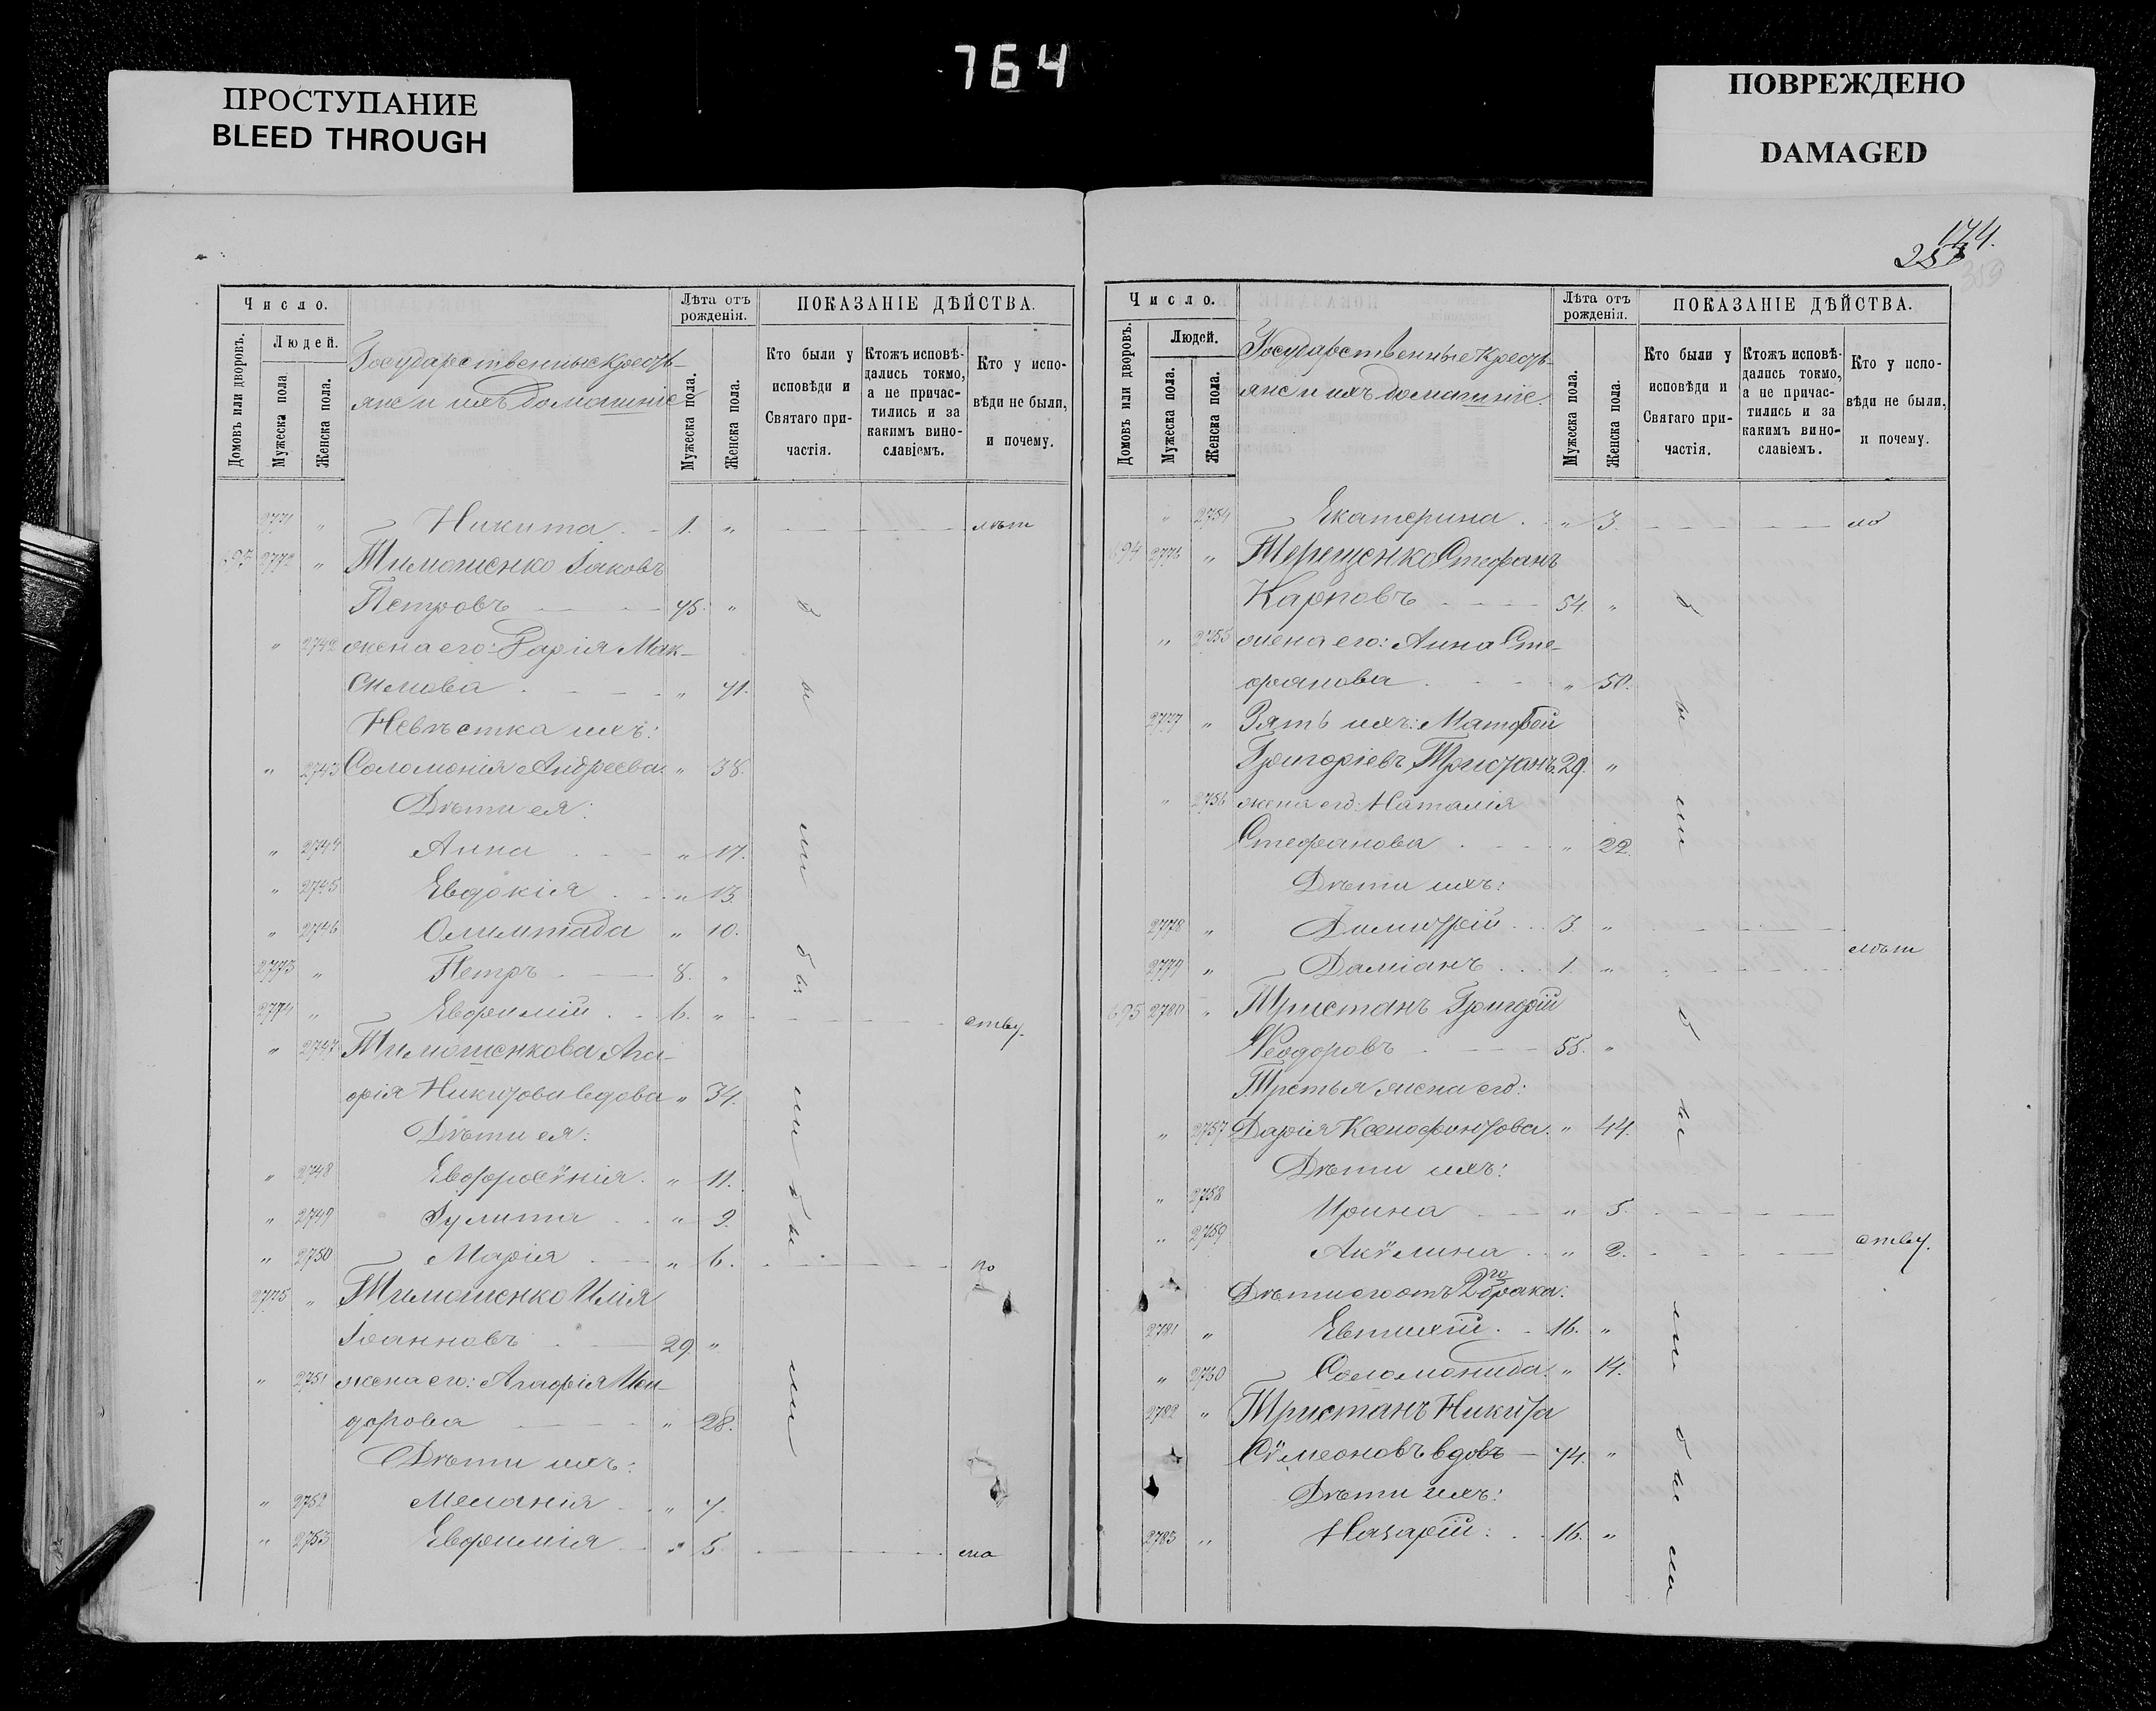 764
ПРОСТУПАНИЕ
BLEED THROUGH
ПОВРЕЖДЕНО
DAMAGED
Число.
Домовъ или дворовъ.
Людей.
Мужеска пола
Женска пола.
Государственные кресть-
яне и ихъ домашніе
Лѣта отъ рожденія.
Мужеска пола.
Женска пола.
ПОКАЗАНІЕ ДѢЙСТВА.
Кто были у исповѣди и Святаго при-частія.
Ктожъ исповѣ-дались токмо, а не причас-тились и за какимъ вино-славіемъ.
Кто у испо-вѣди не были, и почему.
2771 " Никита 1. " лѣт
693 2772 " Тимошенко Іаковъ
Петровъ 75. "
" 2742 жена его: Дарія Мак-
симова " 71.
Невѣстка ихъ:
" 2743 Соломонія Андреева. " 38.
Дѣти ея:
" 2744 Анна " 17.
" 2745 Евдокія " 13.
" 2746 Олимпіада " 10.
2773 " Петръ 8. "
2774 " Евфимій 6. " ству.
" 2747 Тимошенкова Ага-
фія Никитова вдова " 34.
Дѣти ея:
" 2748 Евфросѵнія. " 11.
" 2749 Іулита " 9.
" 2750 Марія " 6. по
2775 " Тимошенко Илія
Іоанновъ 29. "
" 2751 жена его: Агафія Иси-
дорова " 28.
Дѣти ихъ:
" 2752 Меланія " 7.
" 2753 Евфимія " 5 ма
были были были
174.
359
Число.
Домовъ или дворовъ.
Людей.
Мужеска пола.
Женска пола.
Государственные кресть-
яне и ихъ домашніе.
Лѣта отъ рожденія.
Мужеска пола.
Женска пола.
ПОКАЗАНІЕ ДѢЙСТВА.
Кто были у исповѣди и Святаго при-частія.
Ктожъ исповѣ-дались токмо, а не причас-тились и за какимъ вино-славіемъ.
Кто у испо-вѣди не были, и почему.
" 2754 Екатерина. " 3. ло
694 2776 " Терещенко Стефанъ
Карповъ 54. "
" 2755 жена его: Анна Сте-
фанова " 50.
2777 " Зять ихъ: Матфей
Григоріевъ Тристанъ 29. "
" 2756 жена его: Наталія
Стефанова " 22.
Дѣти ихъ:
2778 " Димитрій 3. "
лѣт
2779 " Даміанъ 1. "
695 2780 " Тристанъ Григорій
Ѳеодоровъ 55. "
Третья жена его:
" 2757 Дарія Ксенофонтова. " 44.
Дѣти ихъ:
" 2758 Ирина " 5.
" 2759 Акѵлина " 2. ству.
Дѣти его отъ 2го брака:
2781 " Евтихій. 16. "
" 2760 Соломонида. " 14.
2782 " Тристанъ Никита
Сѵмеоновъ вдовъ 74. "
Дѣти ихъ:
2783 " Назарій: 16. "
были были были